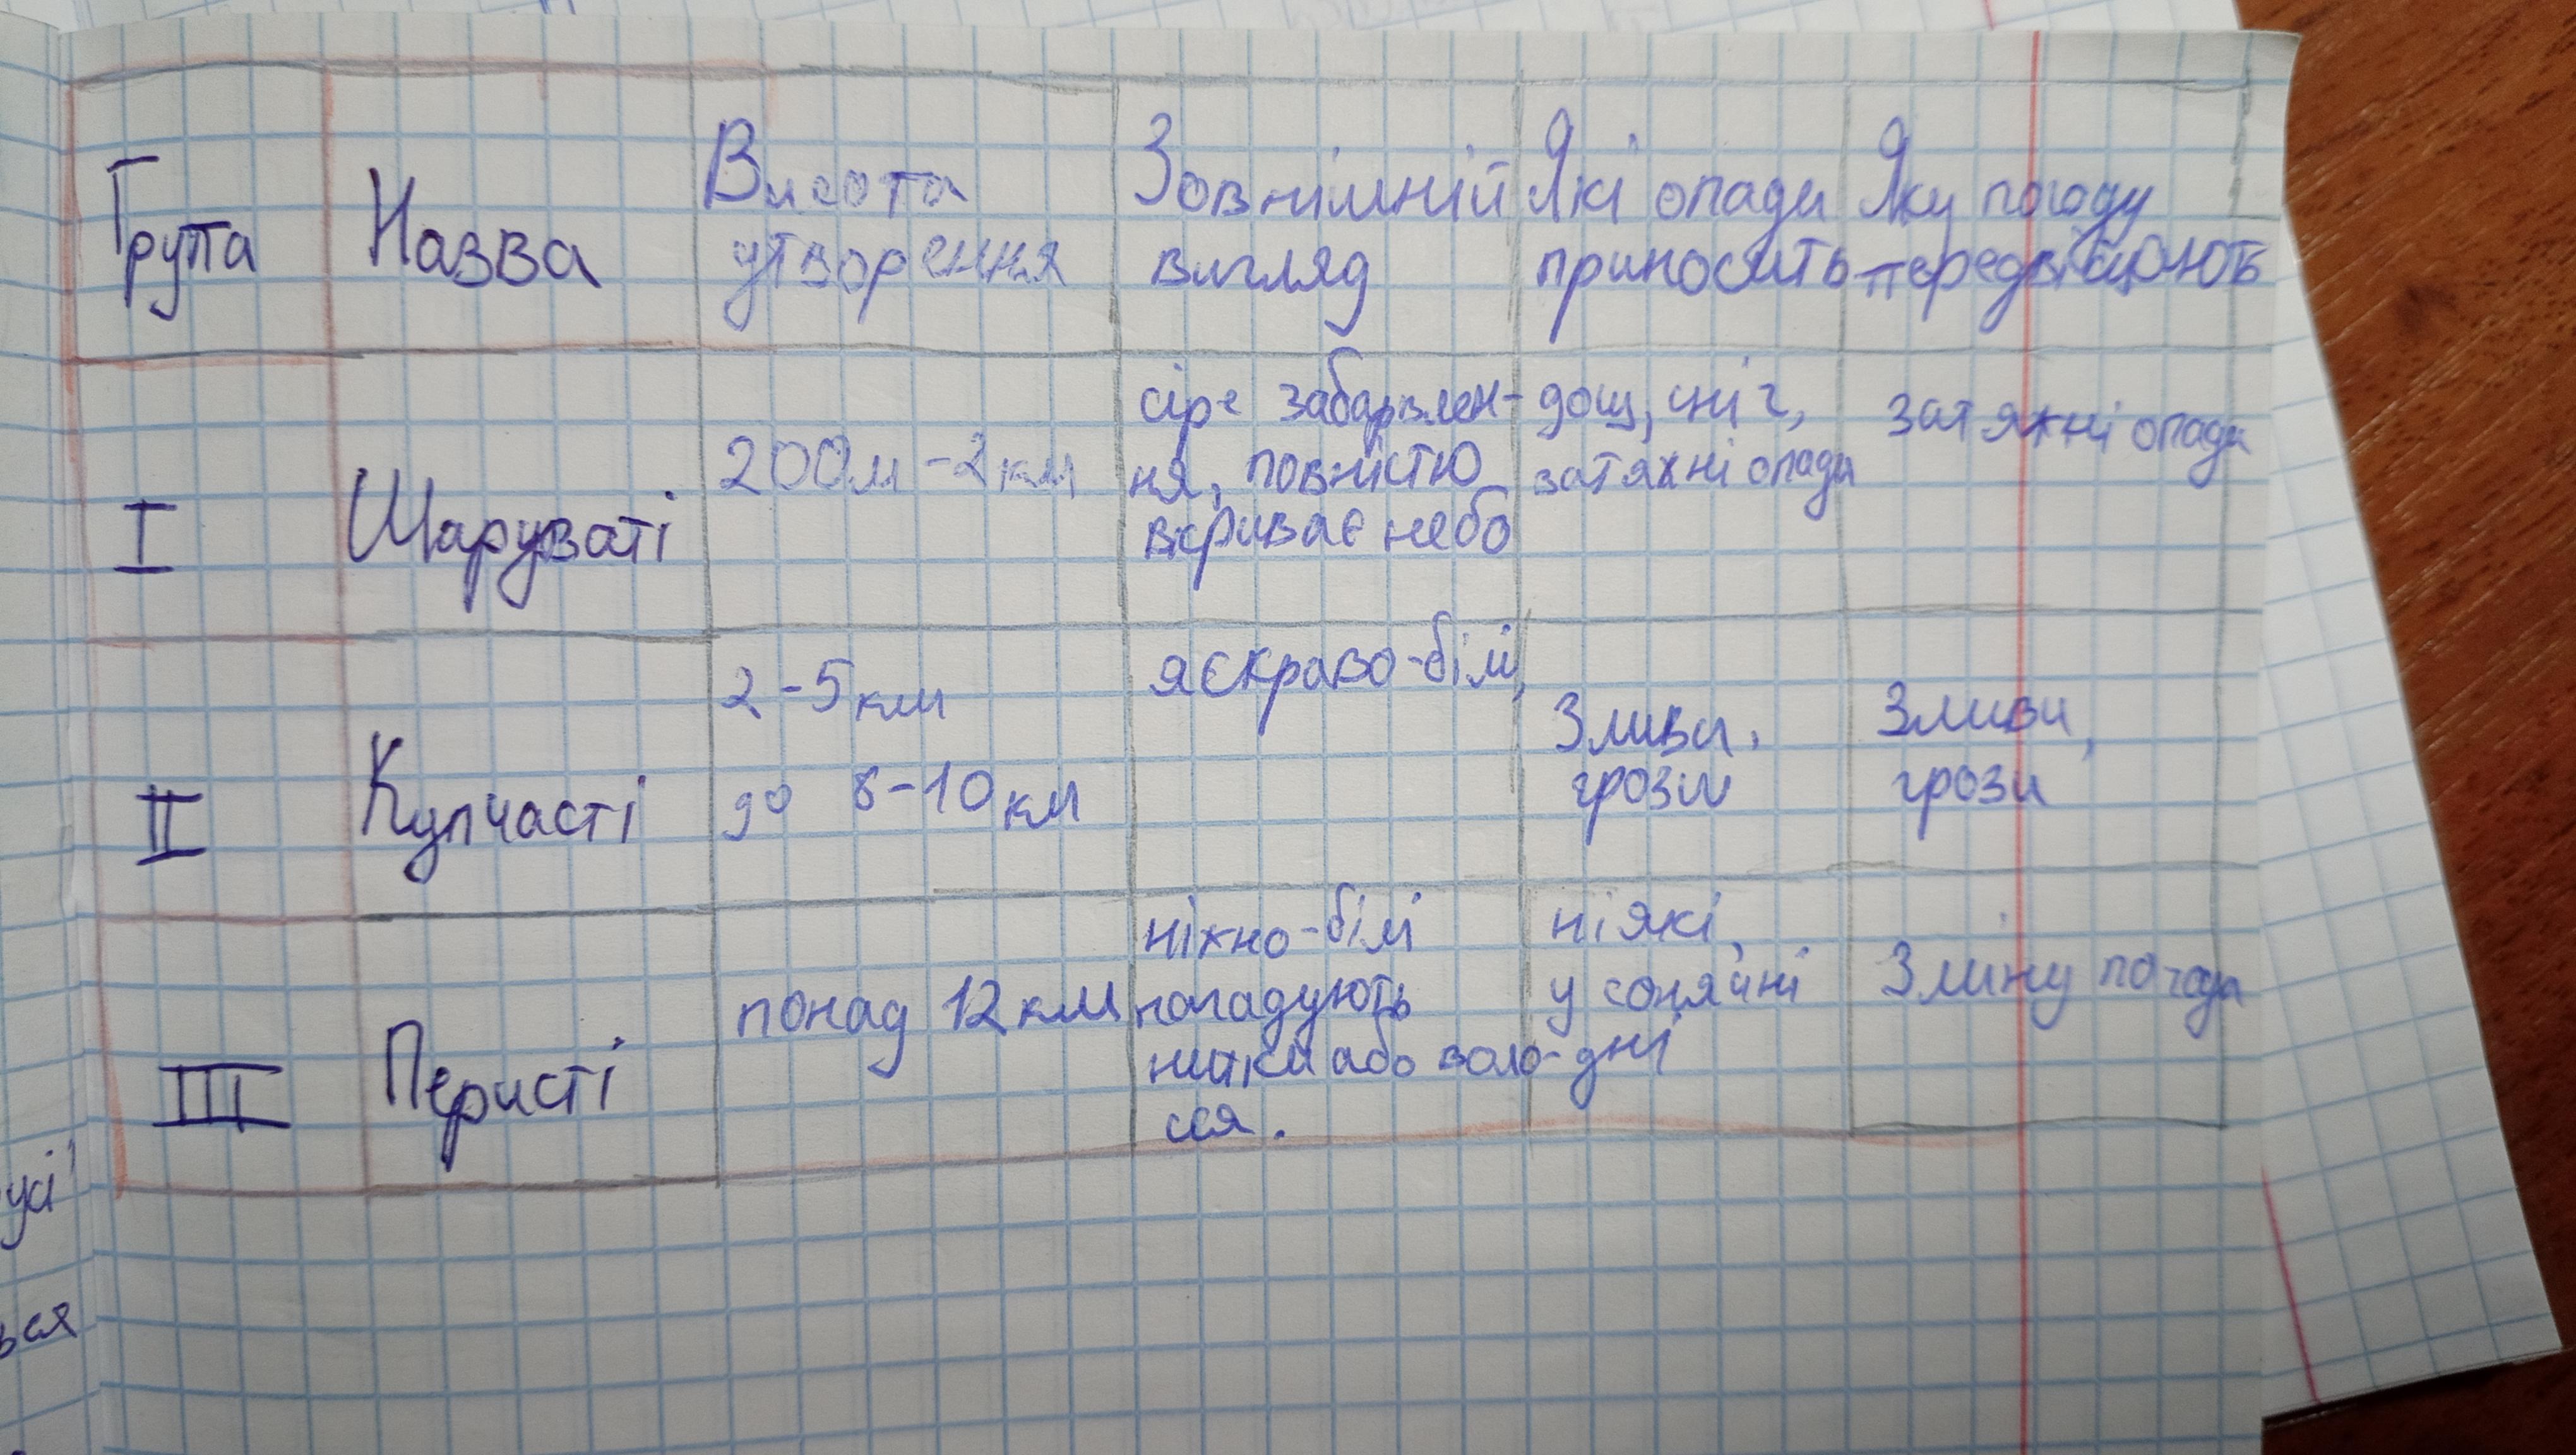 Група
Назва
Висота
утворення
Зовнішній
вигляд
Які опади
приносять
Яку погоду
передвіщають
I
Шаруваті
200м - 2км
сіре забарвлен-
ня, повністю
вкриває небо
дощ, сніг,
затяжні опади
затяжні опади
II
Купчасті
2 - 5 км
до 8 - 10 км
яскраво-білі,
Зливи,
грози
Зливи,
грози
III
Перисті
понад 12 км
ніжно-білі
нагадують
нитки або воло-
сся.
ніякі,
у сонячні
дні
Зміну погоди
усі
ься